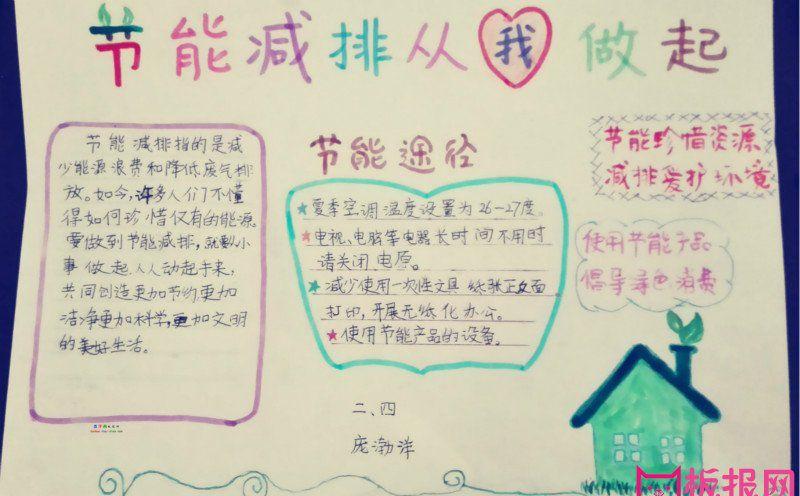 节能减排从我做起
节能减排指的是减
少能源浪费和降低废气排
放。如今,许多人们不懂
得如何珍惜仅有的能源。
要做到节能减排,就小
事做起,人人动起手来,
共同创造更加节约,更加
洁净更加科学,更加文明
的美好生活。
节能途径
★夏季空调温度设置为26-27度。
★电视、电脑等电器长时间不用时
请关闭电原。
★减少使用一次性文具 纸张正反面
打印,开展无纸化办公。
★使用节能产品的设备。
节能珍惜资源
减排爱护环境
使用节能产品
倡导绿色消费
二、四
庞渤洋
板报网